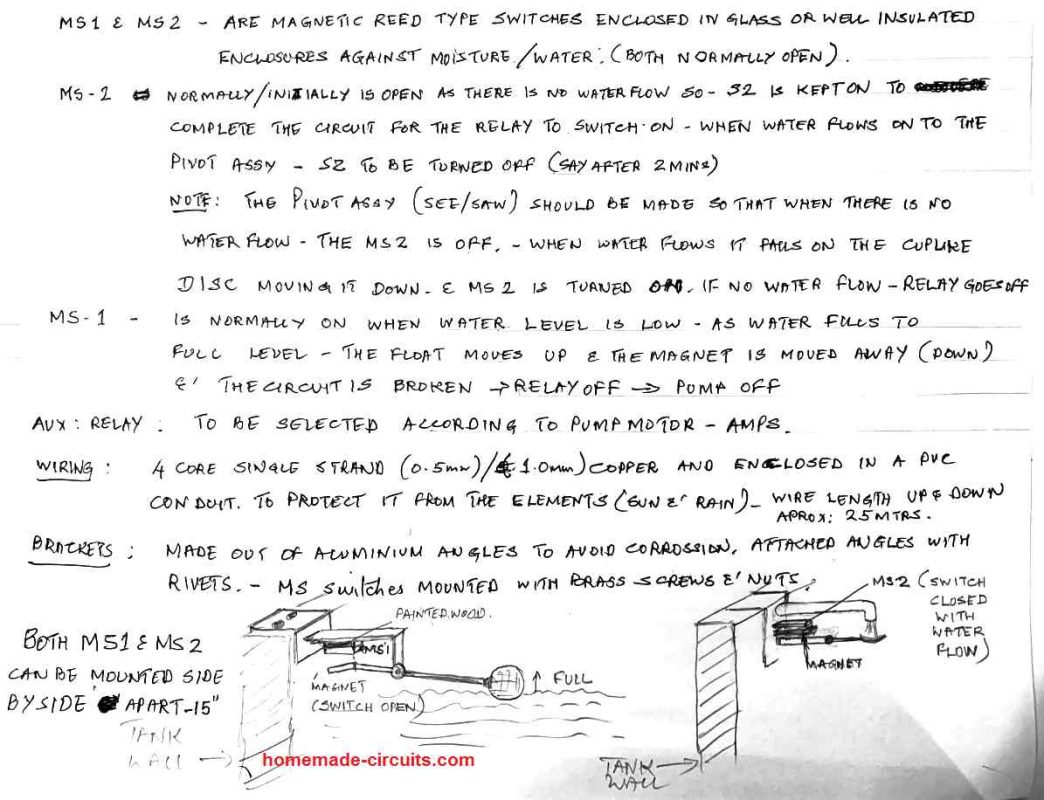 MS1 & MS2 - ARE MAGNETIC REED TYPE SWITCHES ENCLOSED IN GLASS OR WELL INSULATED
ENCLOSURES AGAINST MOISTURE/WATER. (BOTH NORMALLY OPEN).
MS-2 NORMALLY/INITIALLY IS OPEN AS THERE IS NO WATER FLOW SO - S2 IS KEPT ON TO
COMPLETE THE CIRCUIT FOR THE RELAY TO SWITCH ON - WHEN WATER FLOWS ON TO THE
PIVOT ASSY - S2 TO BE TURNED OFF (SAY AFTER 2 MINS)
NOTE: THE PIVOT ASSY (SEE/SAW) SHOULD BE MADE SO THAT WHEN THERE IS NO
WATER FLOW - THE MS2 IS OFF. - WHEN WATER FLOWS IT FALLS ON THE CUPLIKE
DISC MOVING IT DOWN. & MS2 IS TURNED ON. IF NO WATER FLOW - RELAY GOES OFF
MS-1 - IS NORMALLY ON WHEN WATER LEVEL IS LOW - AS WATER FILLS TO
FULL LEVEL - THE FLOAT MOVES UP & THE MAGNET IS MOVED AWAY (DOWN)
&' THE CIRCUIT IS BROKEN → RELAY OFF → PUMP OFF
AUX: RELAY: TO BE SELECTED ACCORDING TO PUMP MOTOR - AMPS.
WIRING: 4 CORE SINGLE STRAND (0.5mm)/(1.0mm) COPPER AND ENCLOSED IN A PVC
CONDUIT. TO PROTECT IT FROM THE ELEMENTS (SUN &' RAIN) - WIRE LENGTH UP & DOWN
APROX: 25 MTRS.
BRACKETS: MADE OUT OF ALUMINIUM ANGLES TO AVOID CORROSSION, ATTACHED ANGLES WITH
RIVETS. - MS switches MOUNTED WITH BRASS SCREWS &' NUTS.
BOTH MS1 & MS2
CAN BE MOUNTED SIDE
BY SIDE APART-15"
TANK
WALL
PAINTED WOOD.
MS1
MAGNET
(SWITCH OPEN)
FULL
homemade-circuits.com
MS2 (SWITCH
CLOSED
WITH
WATER
FLOW)
MAGNET
TANK
WALL